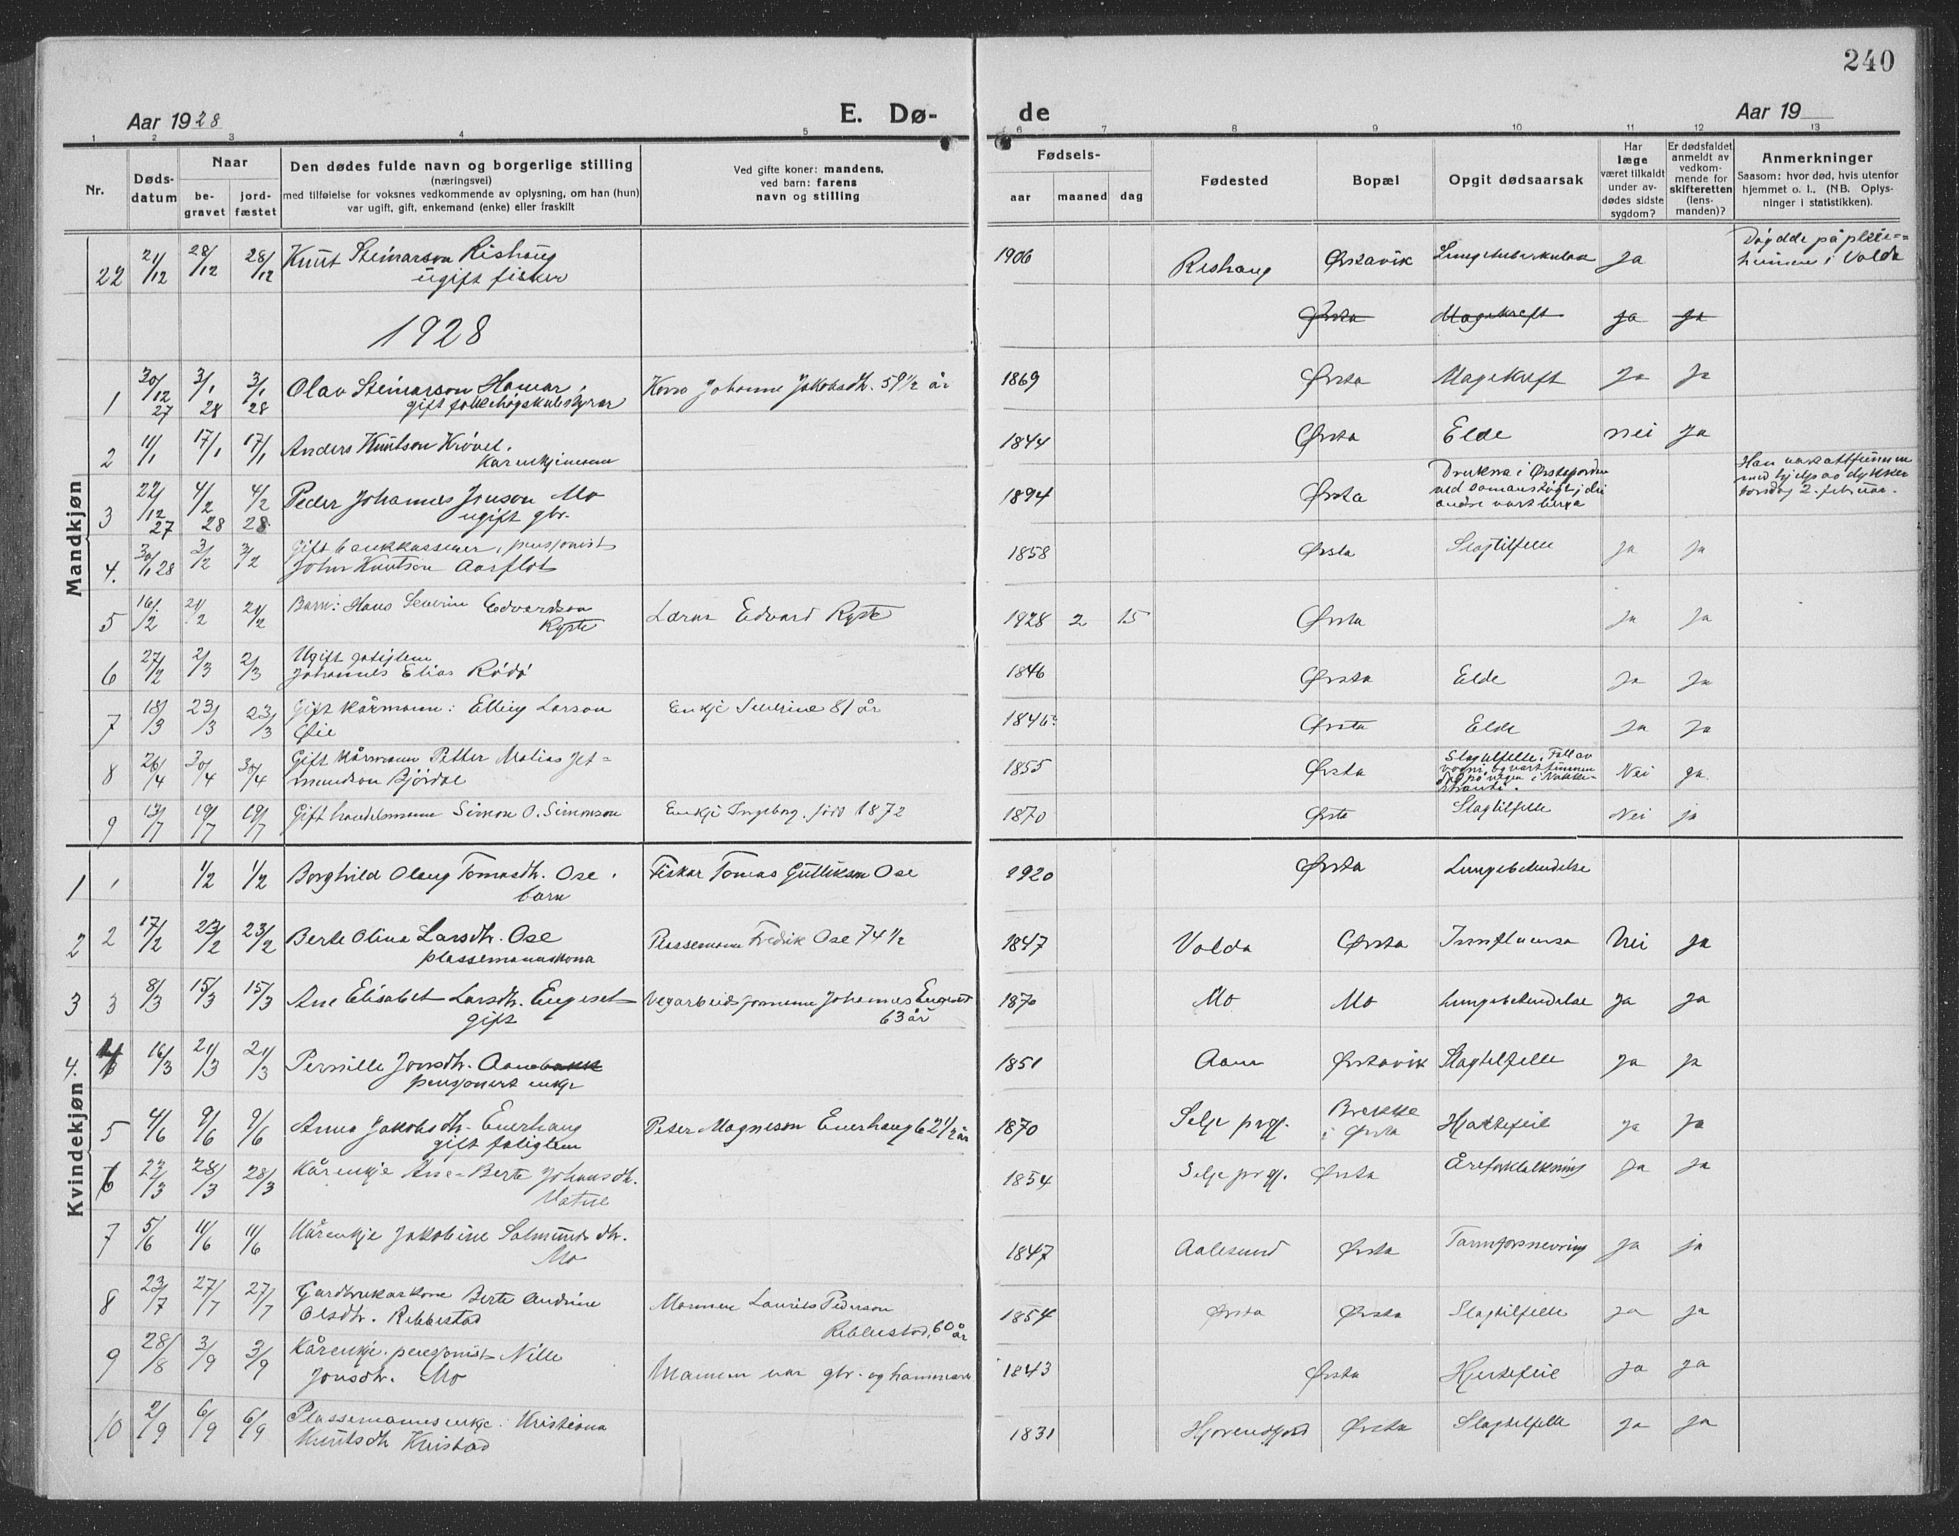 240
Aar 1928
E. Dø-
de
Aar 19
1 2 3 4 5 6 7 8 9 10 11 12 13
Nr.
Døds-
datum
Naar
be-
gravet
jord-
fæstet
Den dødes fulde navn og borgerlige stilling
(næringsvei)
med tilføielse for voksnes vedkommende av oplysning, om han (hun)
var ugift, gift, enkemand (enke) eller fraskilt
Ved gifte koner: mandens,
ved barn: farens
navn og stilling
Fødsels-
aar maaned dag
Fødested
Bopæl
Opgit dødsaarsak
Har
læge
været tilkaldt
under av-
dødes sidste
sygdom?
Er dødsfaldet
anmeldt av
vedkom-
mende for
skifteretten
(lens-
manden)?
Anmerkninger
Saasom: hvor død, hvis utenfor
hjemmet o. l.. (NB. Oplys-
ninger i statistikken).
Mandkjøn
22 21/12 28/12 28/12 Knut Steinarson Rishaug
ugift fisker
1906 Rishaug Ørstavik Lungetuberkulose Ja
Døydde på pleie-
heimen i Volda
1928
Ørsta Magekreft Ja Ja
1 30/12 27 3/1 28 3/1 28 Olav Steinarson Hamar,
gift folkehøgskulestyrar
Kona Johanne Jakobsdtr. 59 1/2 år
1869 Ørsta Magekreft Ja Ja
2 11/1 17/1 17/1 Anders Knutson
1844 Ørsta Elde Nei Ja
3 22/12 27 4/2 28 4/2 28 Peder Johannes Jonson Mo
ugift gbr.
1894 Ørsta Drukna i Ørstafjorden
Han vart attfunnen
med hjelp av dykker
torsdag 2. februar.
4. 30/1 28 3/2 3/2 Gift bankkasserer, pensjonist
John Knutson Aarflot
1858 Ørsta Slagtilfelle Ja Ja
5 16/2 21/2 21/2 Barn: Hans Severin Edvardson
Ryste
Lars Edvard Ryste
1928 2 15 Ørsta Ja Ja
6 27/2 2/3 2/3 Ugift fatiglem
Johannes Elias Rødø
1846 Ørsta Elde Ja Ja
7 18/3 23/3 23/3 Gift kårmann: Elling Larson
Øie
Enkje Severine 81 år
1846 Ørsta Elde Ja Ja
8 26/4 30/4 30/4 Gift kårmann Petter Matias Jet-
mundson Bjørdal
1855 Ørsta Slagtilfelle. Fall av
Nei Ja
9 13/7 19/7 19/7 Gift handelsmann Simon O. Simonson
Enkje Ingeborg, født 1872
1870 Ørsta Slagtilfelle Nei Ja
Kvindekjøn
1 1 1/2 1/2 Borghild Olaug Tomasdtr. Ose.
barn
Fiskar Tomas Gutlikson Ose
1920 Ørsta Lungebetendelse
2 2 17/2 23/2 23/2 Berte Olina Larsdtr. Ose
plassemannskona
Plassemann Fredrik Ose 74 1/2
1847 Volda Ørsta Innfluensa Nei Ja
3 3 8/3 15/3 15/3 Ane Elisabet Larsdtr. Engeset
gift
Vegarbeidsformann Johannes Engeset
63 år
1870 Mo Mo Lungebetendelse Ja Ja
4. 4 16/3 21/3 21/3 Pernille Jonsdtr. Aam
pensjonert enkje
1851 Aam Ørstavik Slagtilfelle Ja Ja
5 4/6 9/6 9/6 Anna Jakobsdtr. Enerhaug
gift fatiglem
Peter Magneson Enerhaug 62 1/2 år
1870 Selje prgj. Brekke
i Ørsta
Hjartefeil Ja Ja
6 23/3 28/3 28/3 Kårenkje Ane-Berte Johansdtr.
Vatne
1854 Selje prgj. Ørsta Åreforkalkning Ja Ja
7 5/6 11/6 11/6 Kårenkje Jakobine Salmundsdtr.
Mo
1847 Aalesund Ørsta Tarmforsnevring Ja Ja
8 23/7 27/7 27/7 Gardbrukarkone Berte Andrine
Olsdtr. Ribbestad
Mannen Laurits Pederson
Ribbestad, 60 år
1854 Ørsta Ørsta Slagtilfelle Ja Ja
9 28/8 3/9 3/9 Kårenkje, pensjonist Nille
Jonsdtr. Mo
Mannen var gbr. og
1843 Ørsta Hjertefeil Ja Ja
10 2/9 6/9 6/9 Plassemannsenkje. Kristiana
Knutsdtr
1831 Hjørendfjord Ørsta Slagtilfelle Ja Ja